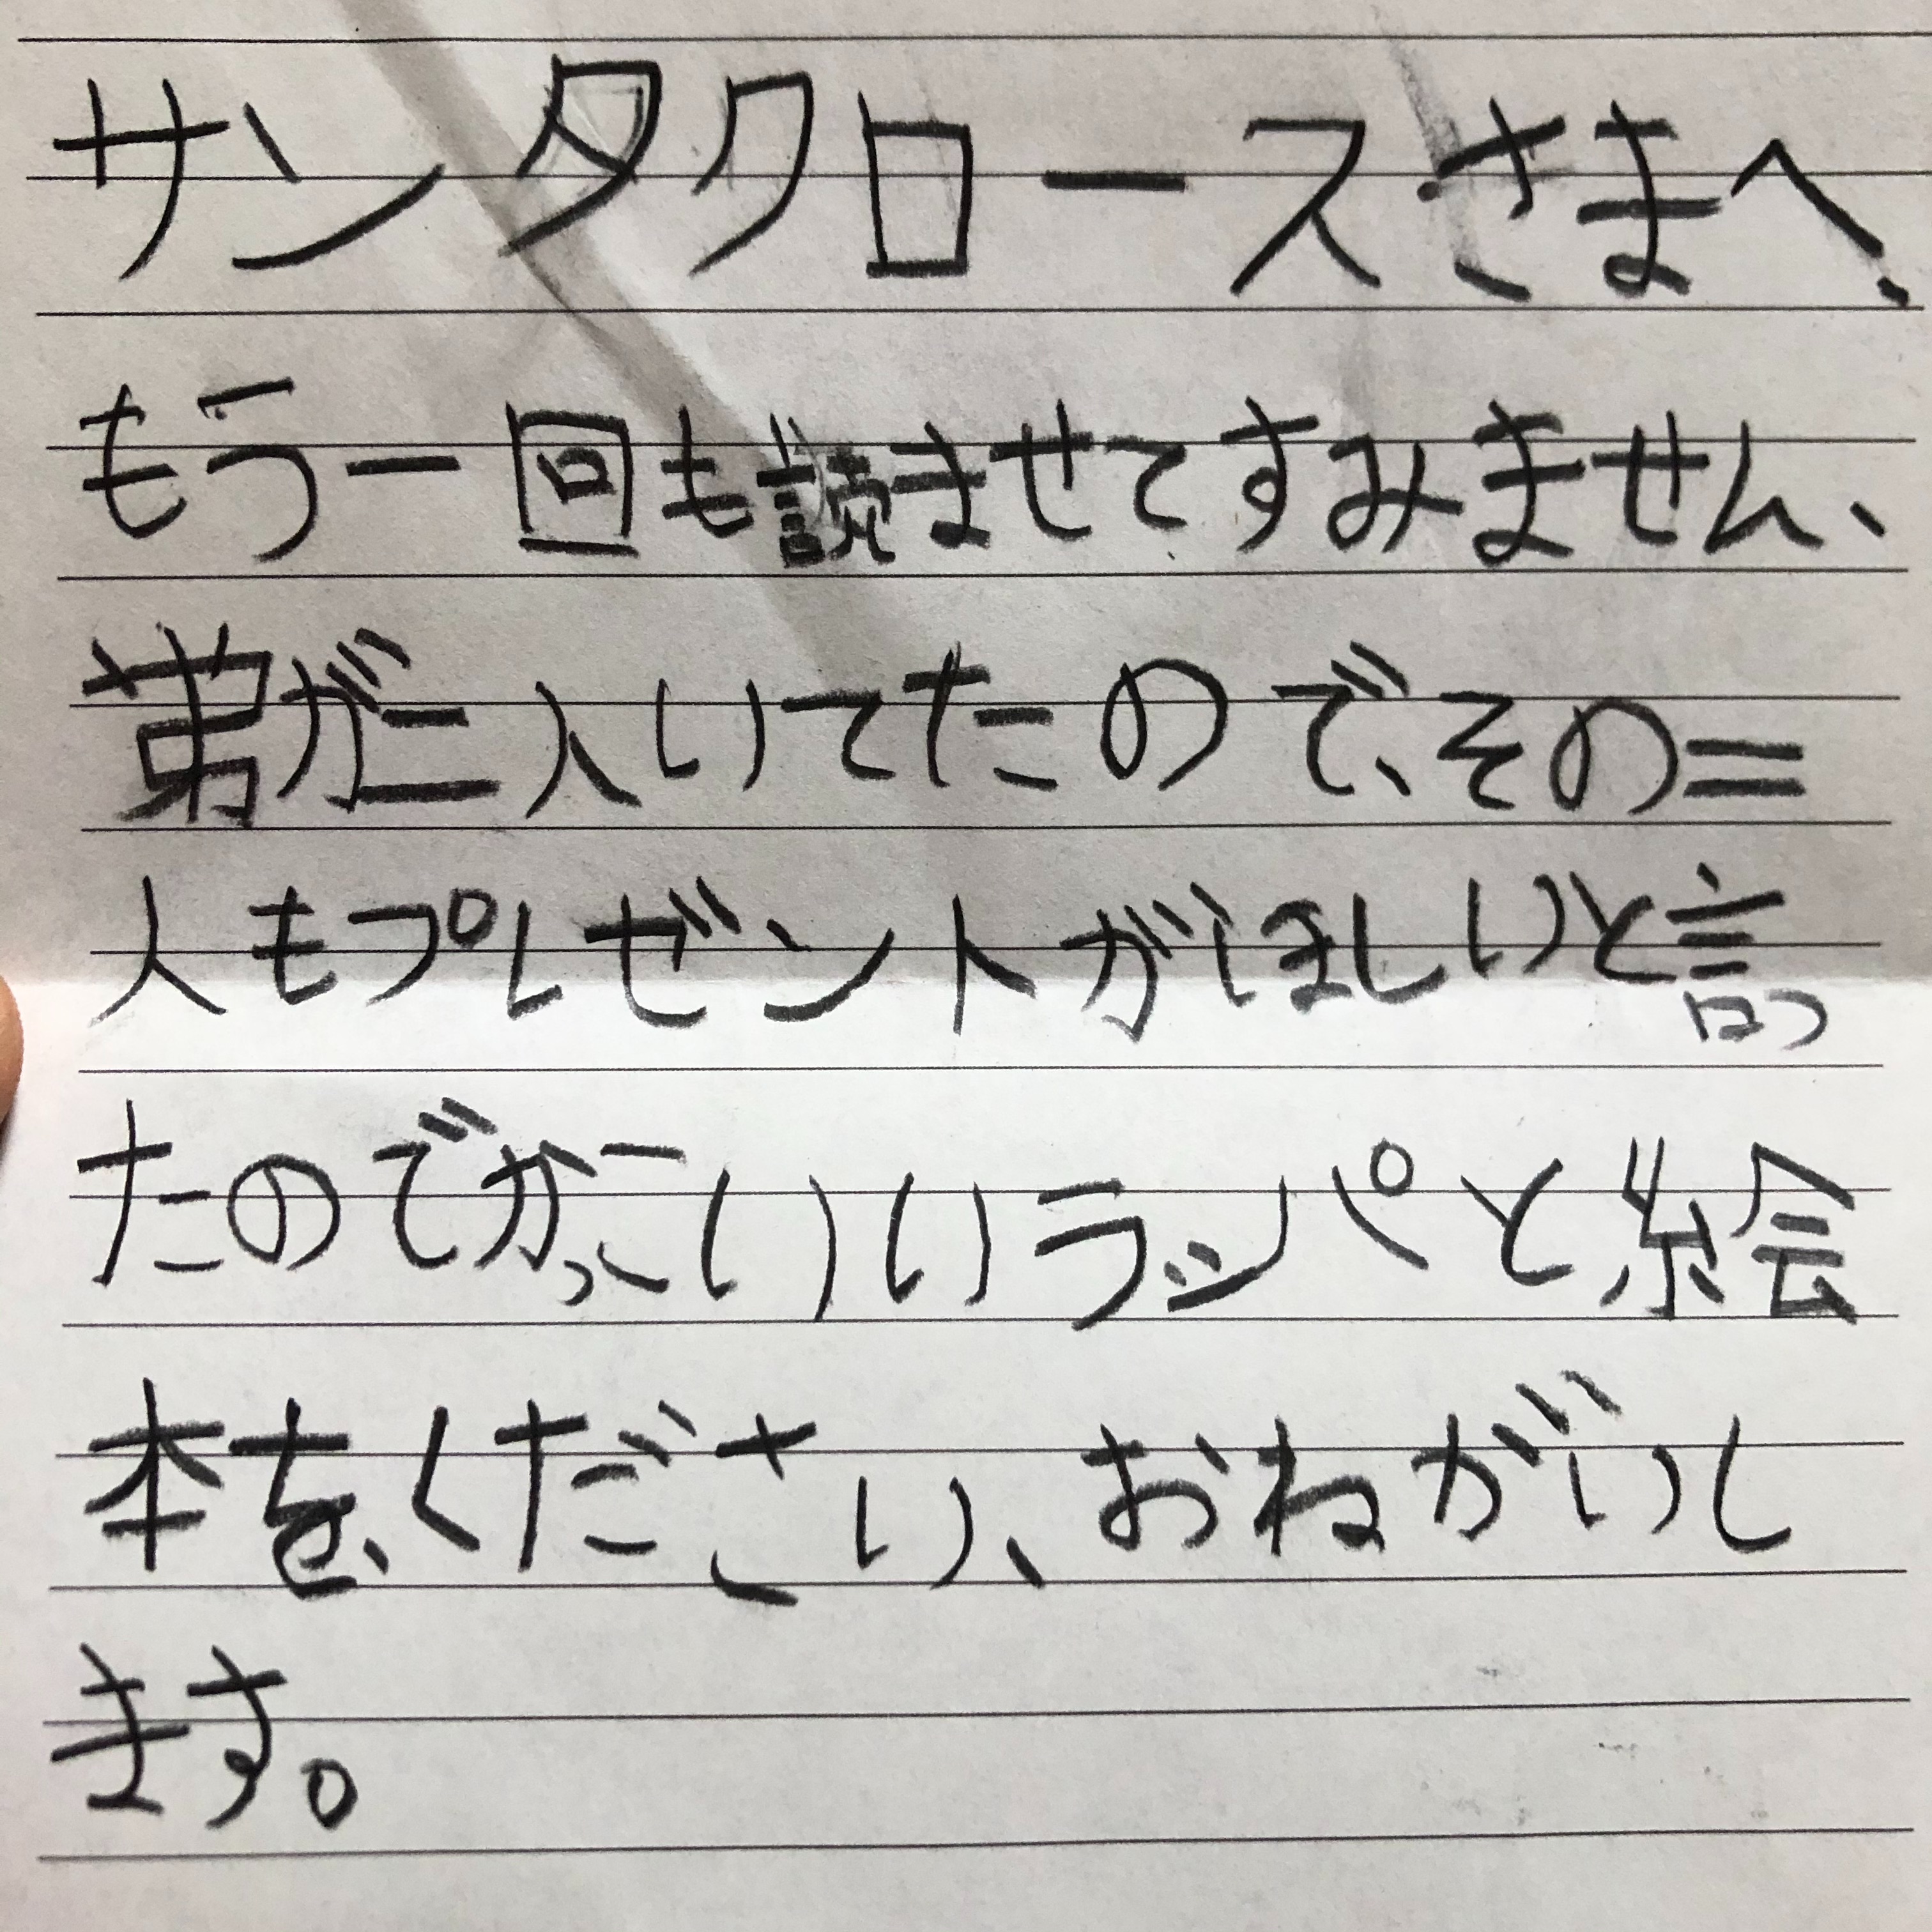 サンタクロースさまへ、
もう一回も読ませてすみません、
弟が二人いてたので、その二
人もプレゼントがほしいと言っ
たのでかっこいいラッパと絵
本を、ください、おねがいし
ます。